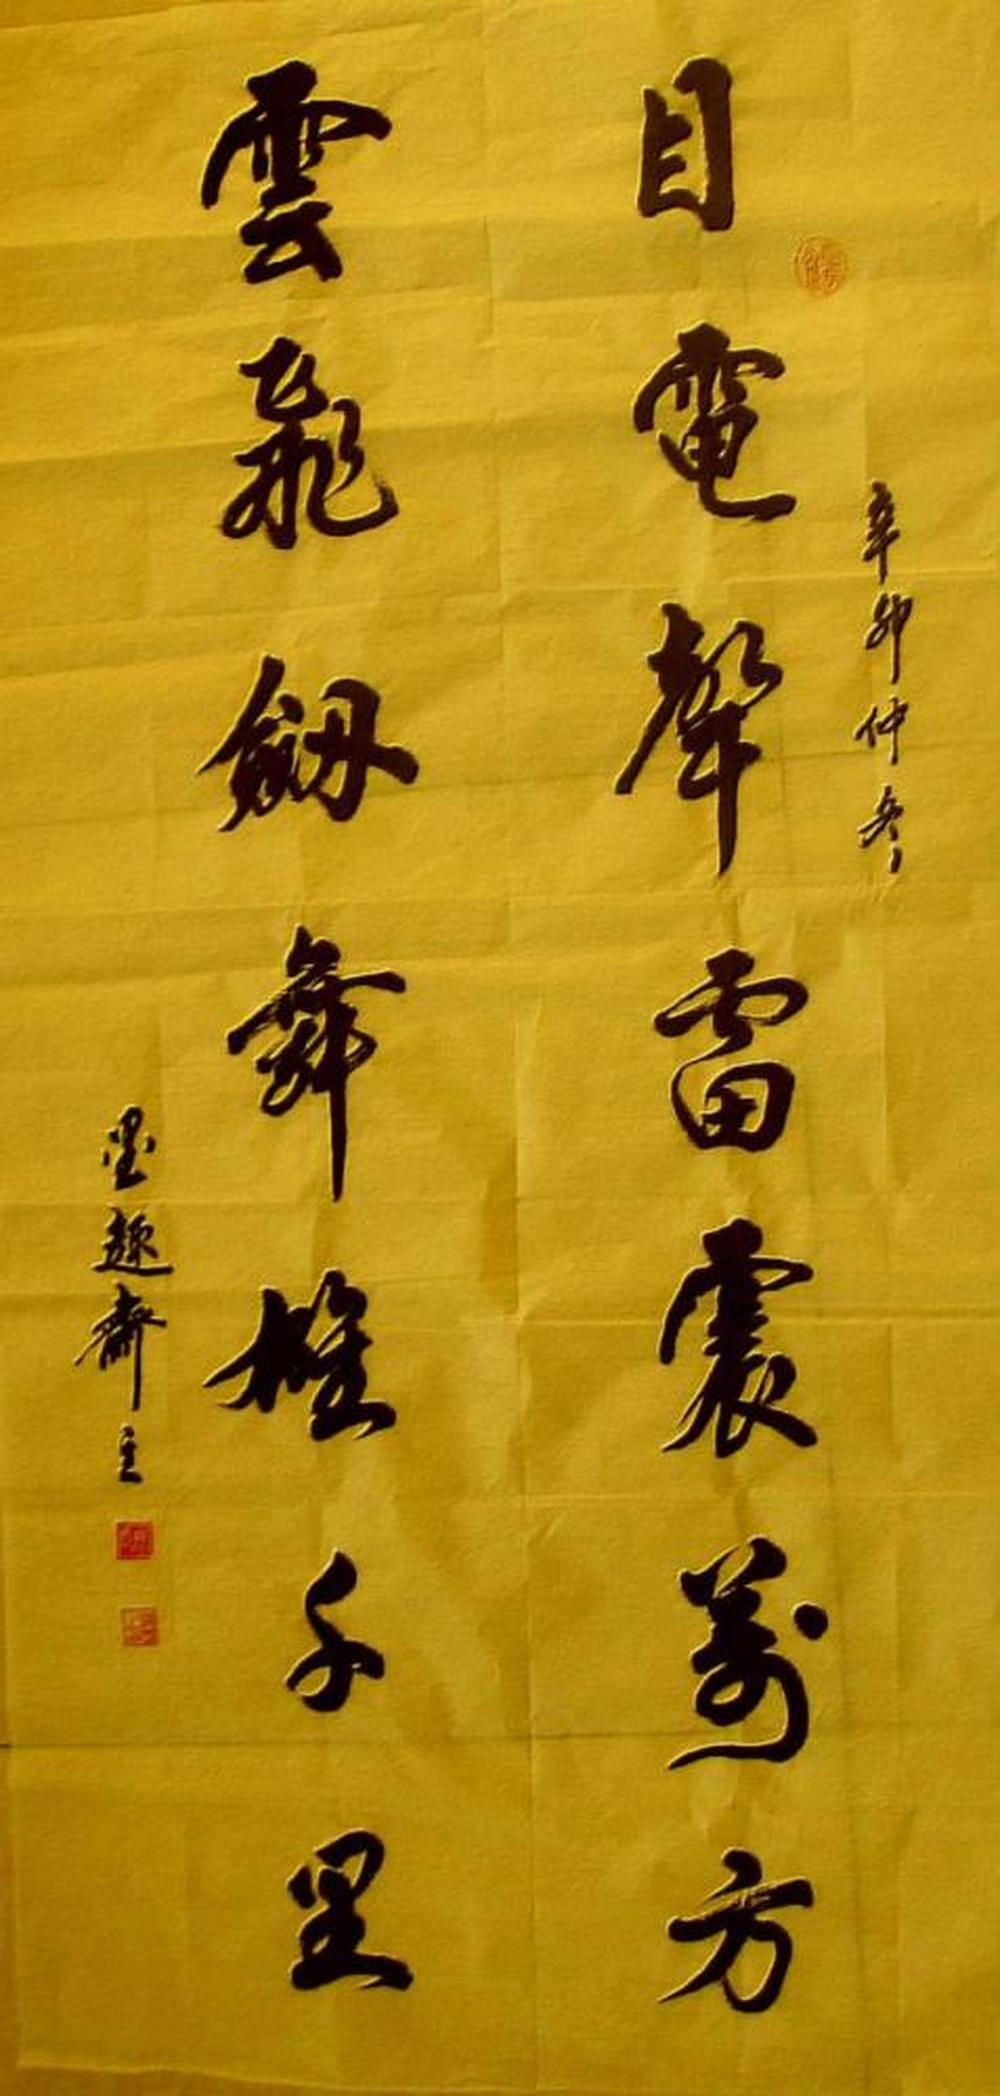 目電聲雷震萬方
辛卯仲冬
雲飛劔舞雄千里
墨趣齋主